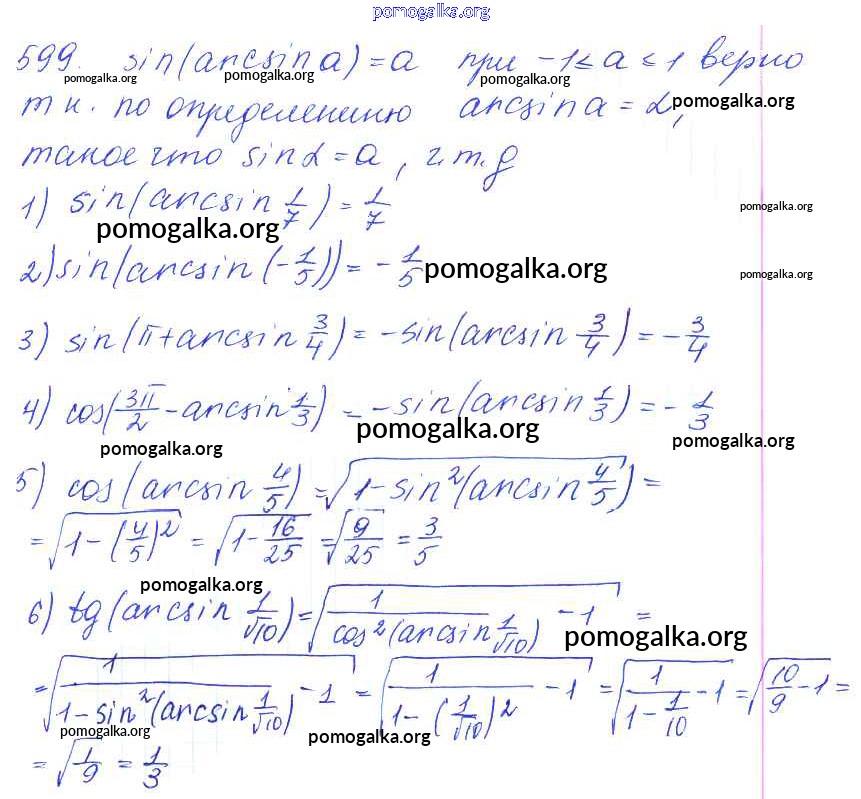 pomogalka.org
599. sin(arcsin a) = a при -1 ≤ a ≤ 1 верно
pomogalka.org pomogalka.org pomogalka.org
т к. по определению arcsin a = α,
pomogalka.org
такое что sin α = a, ч.т.д
1) sin(arcsin 1/7) = 1/7
pomogalka.org pomogalka.org
2) sin(arcsin (-1/5)) = -1/5
pomogalka.org pomogalka.org
3) sin(π + arcsin 3/4) = -sin(arcsin 3/4) = -3/4
4) cos(3π/2 - arcsin 1/3) = -sin(arcsin 1/3) = -1/3
pomogalka.org pomogalka.org pomogalka.org
5) cos(arcsin 4/5) = √(1 - sin²(arcsin 4/5)) =
= √(1 - (4/5)²) = √(1 - 16/25) = √(9/25) = 3/5
pomogalka.org
6) tg(arcsin 1/√10) = √(1/cos²(arcsin 1/√10) - 1) =
pomogalka.org
= √(1/(1 - sin²(arcsin 1/√10)) - 1) = √(1/(1 - (1/√10)²) - 1) = √(1/(1 - 1/10) - 1) = √(10/9 - 1) =
pomogalka.org pomogalka.org
= √(1/9) = 1/3